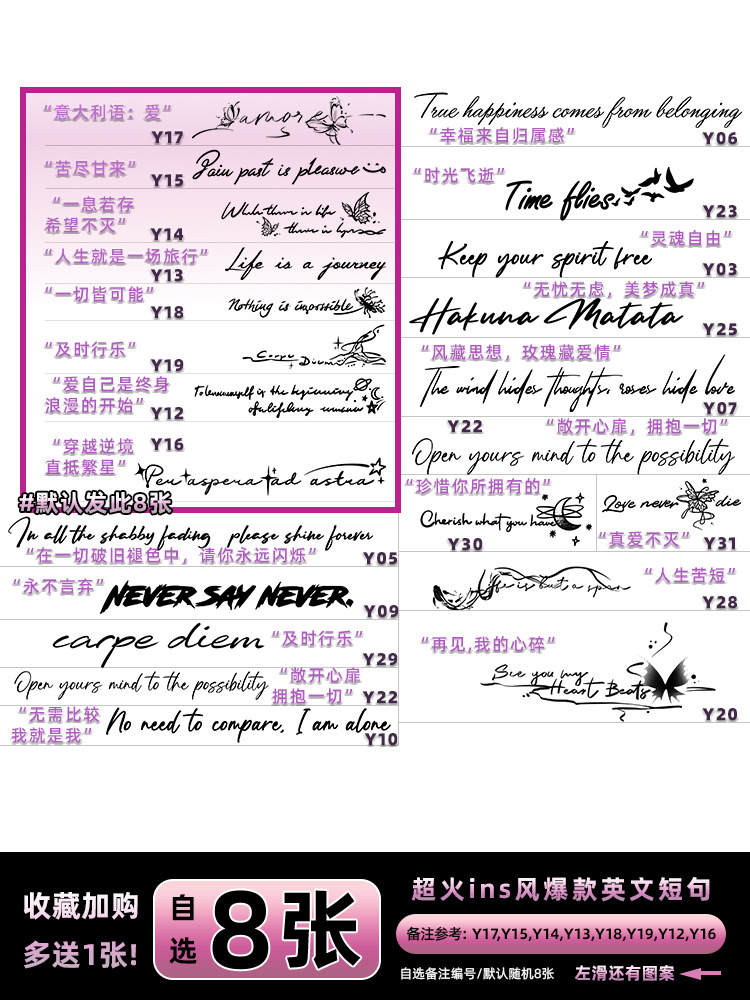 “意大利语：爱”
amore
Y17
“苦尽甘来”
Pain past is pleasure
Y15
“一息若存
希望不灭”
While there is life
there is hope
Y14
“人生就是一场旅行”
Life is a journey
Y13
“一切皆可能”
Nothing is impossible
Y18
“及时行乐”
Carpe Diem
Y19
“爱自己是终身
浪漫的开始”
To love oneself is the beginning
of a lifelong romance
Y12
“穿越逆境
直抵繁星”
Y16
Per aspera ad astra
#默认发此8张
In all the shabby fading please shine forever
“在一切破旧褪色中，请你永远闪烁”
Y05
“永不言弃”
NEVER SAY NEVER.
Y09
carpe diem
“及时行乐”
Y29
Open yours mind to the possibility
“敞开心扉
拥抱一切”
Y22
“无需比较
我就是我”
No need to compare, I am alone
Y10
True happiness comes from belonging
“幸福来自归属感”
Y06
“时光飞逝”
Time flies.
Y23
“灵魂自由”
Keep your spirit free
Y03
“无忧无虑，美梦成真”
Hakuna Matata
Y25
“风藏思想，玫瑰藏爱情”
The wind hides thoughts, roses hide love
Y07
Y22
“敞开心扉，拥抱一切”
Open yours mind to the possibility
“珍惜你所拥有的”
Cherish what you have
Y30
Love never die
“真爱不灭”
Y31
“人生苦短”
Life is but a span
Y28
“再见,我的心碎”
See you my
Heart Beats
Y20
收藏加购
多送1张!
自选
8张
超火ins风爆款英文短句
备注参考: Y17,Y15,Y14,Y13,Y18,Y19,Y12,Y16
自选备注编号/默认随机8张
左滑还有图案